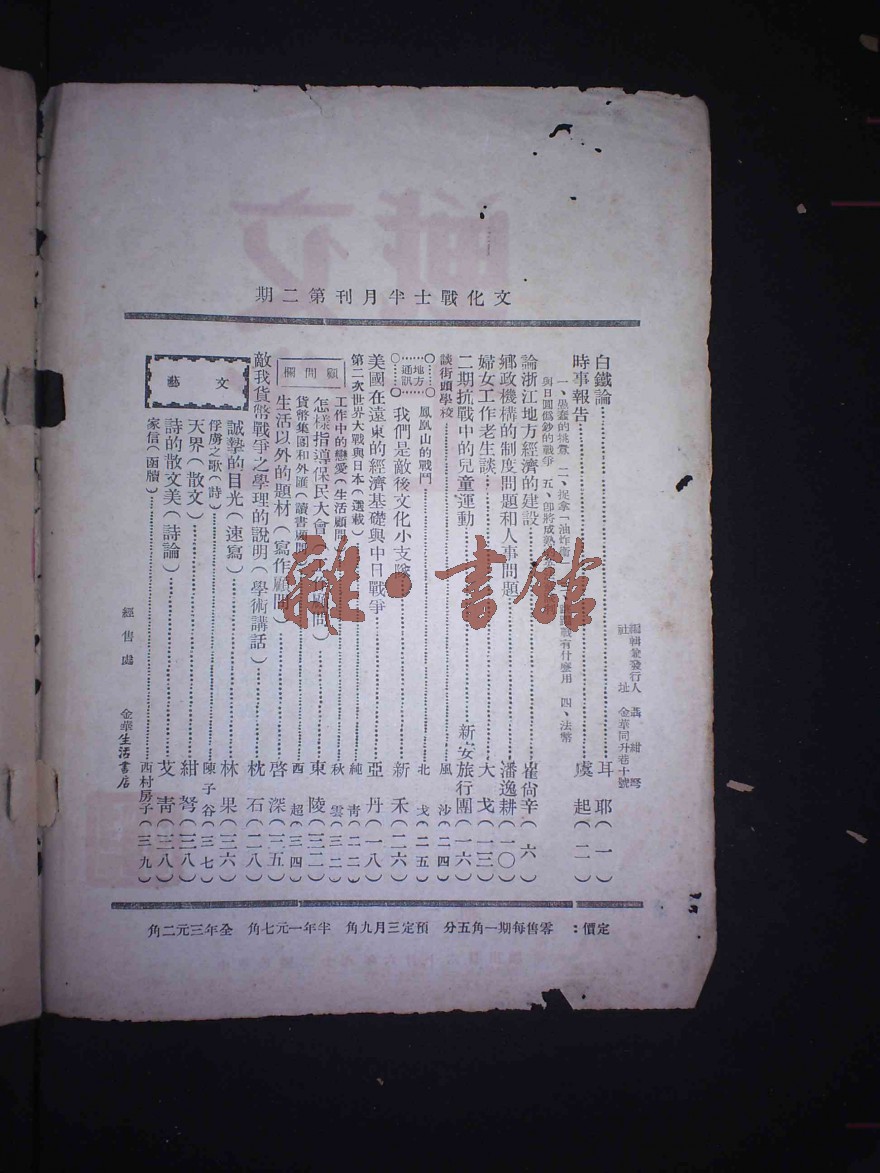 文化戰士半月刊第二期
編輯兼發行人 聶紺弩
社址 金華同升巷十號
白鐵論 耳耶(一)
時事報告 虞起(二)
一、愚蠢的挑釁 二、捉拿「油炸衛 戰有什麼用 四、法幣
與日圓僞鈔的戰爭 五、即將成熟
論浙江地方經濟的建設 崔尙辛(六)
鄉政機構的制度問題和人事問題 潘逸耕(一〇)
婦女工作老生談 大戈(一三)
二期抗戰中的兒童運動 新安旅行團(一六)
談街頭學校 風沙(二四)
地方通訊
鳳凰山的戰鬥 北戈(二五)
我們是敵後文化小支隊 新禾(二六)
美國在遠東的經濟基礎與中日戰爭 亞丹(一八)
第二次世界大戰與日本(選載) 純青(二二)
顧問欄
工作中的戀愛(生活顧問) 秋雲(三二)
怎樣指導保民大會( 顧問) 東陵(三二)
貨幣集團和外匯(讀書顧問) 西超(三四)
生活以外的題材(寫作顧問) 啓深(三五)
敵我貨幣戰爭之學理的說明(學術講話) 枕石(二八)
文藝
誠摯的目光(速寫) 林果(三六)
俘虜之歌(詩) 陳子谷(三七)
天界(散文) 紺弩(三八)
詩的散文美(詩論) 艾青(三八)
家信(函牘) 西村房子(三九)
經售處 金華生活書店
定價: 零售每期一角五分 預定三月九角 半年一元七角 全年三元二角
雜·書館